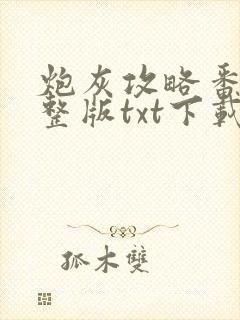 炮灰攻略番
整版txt下載
孤木雙